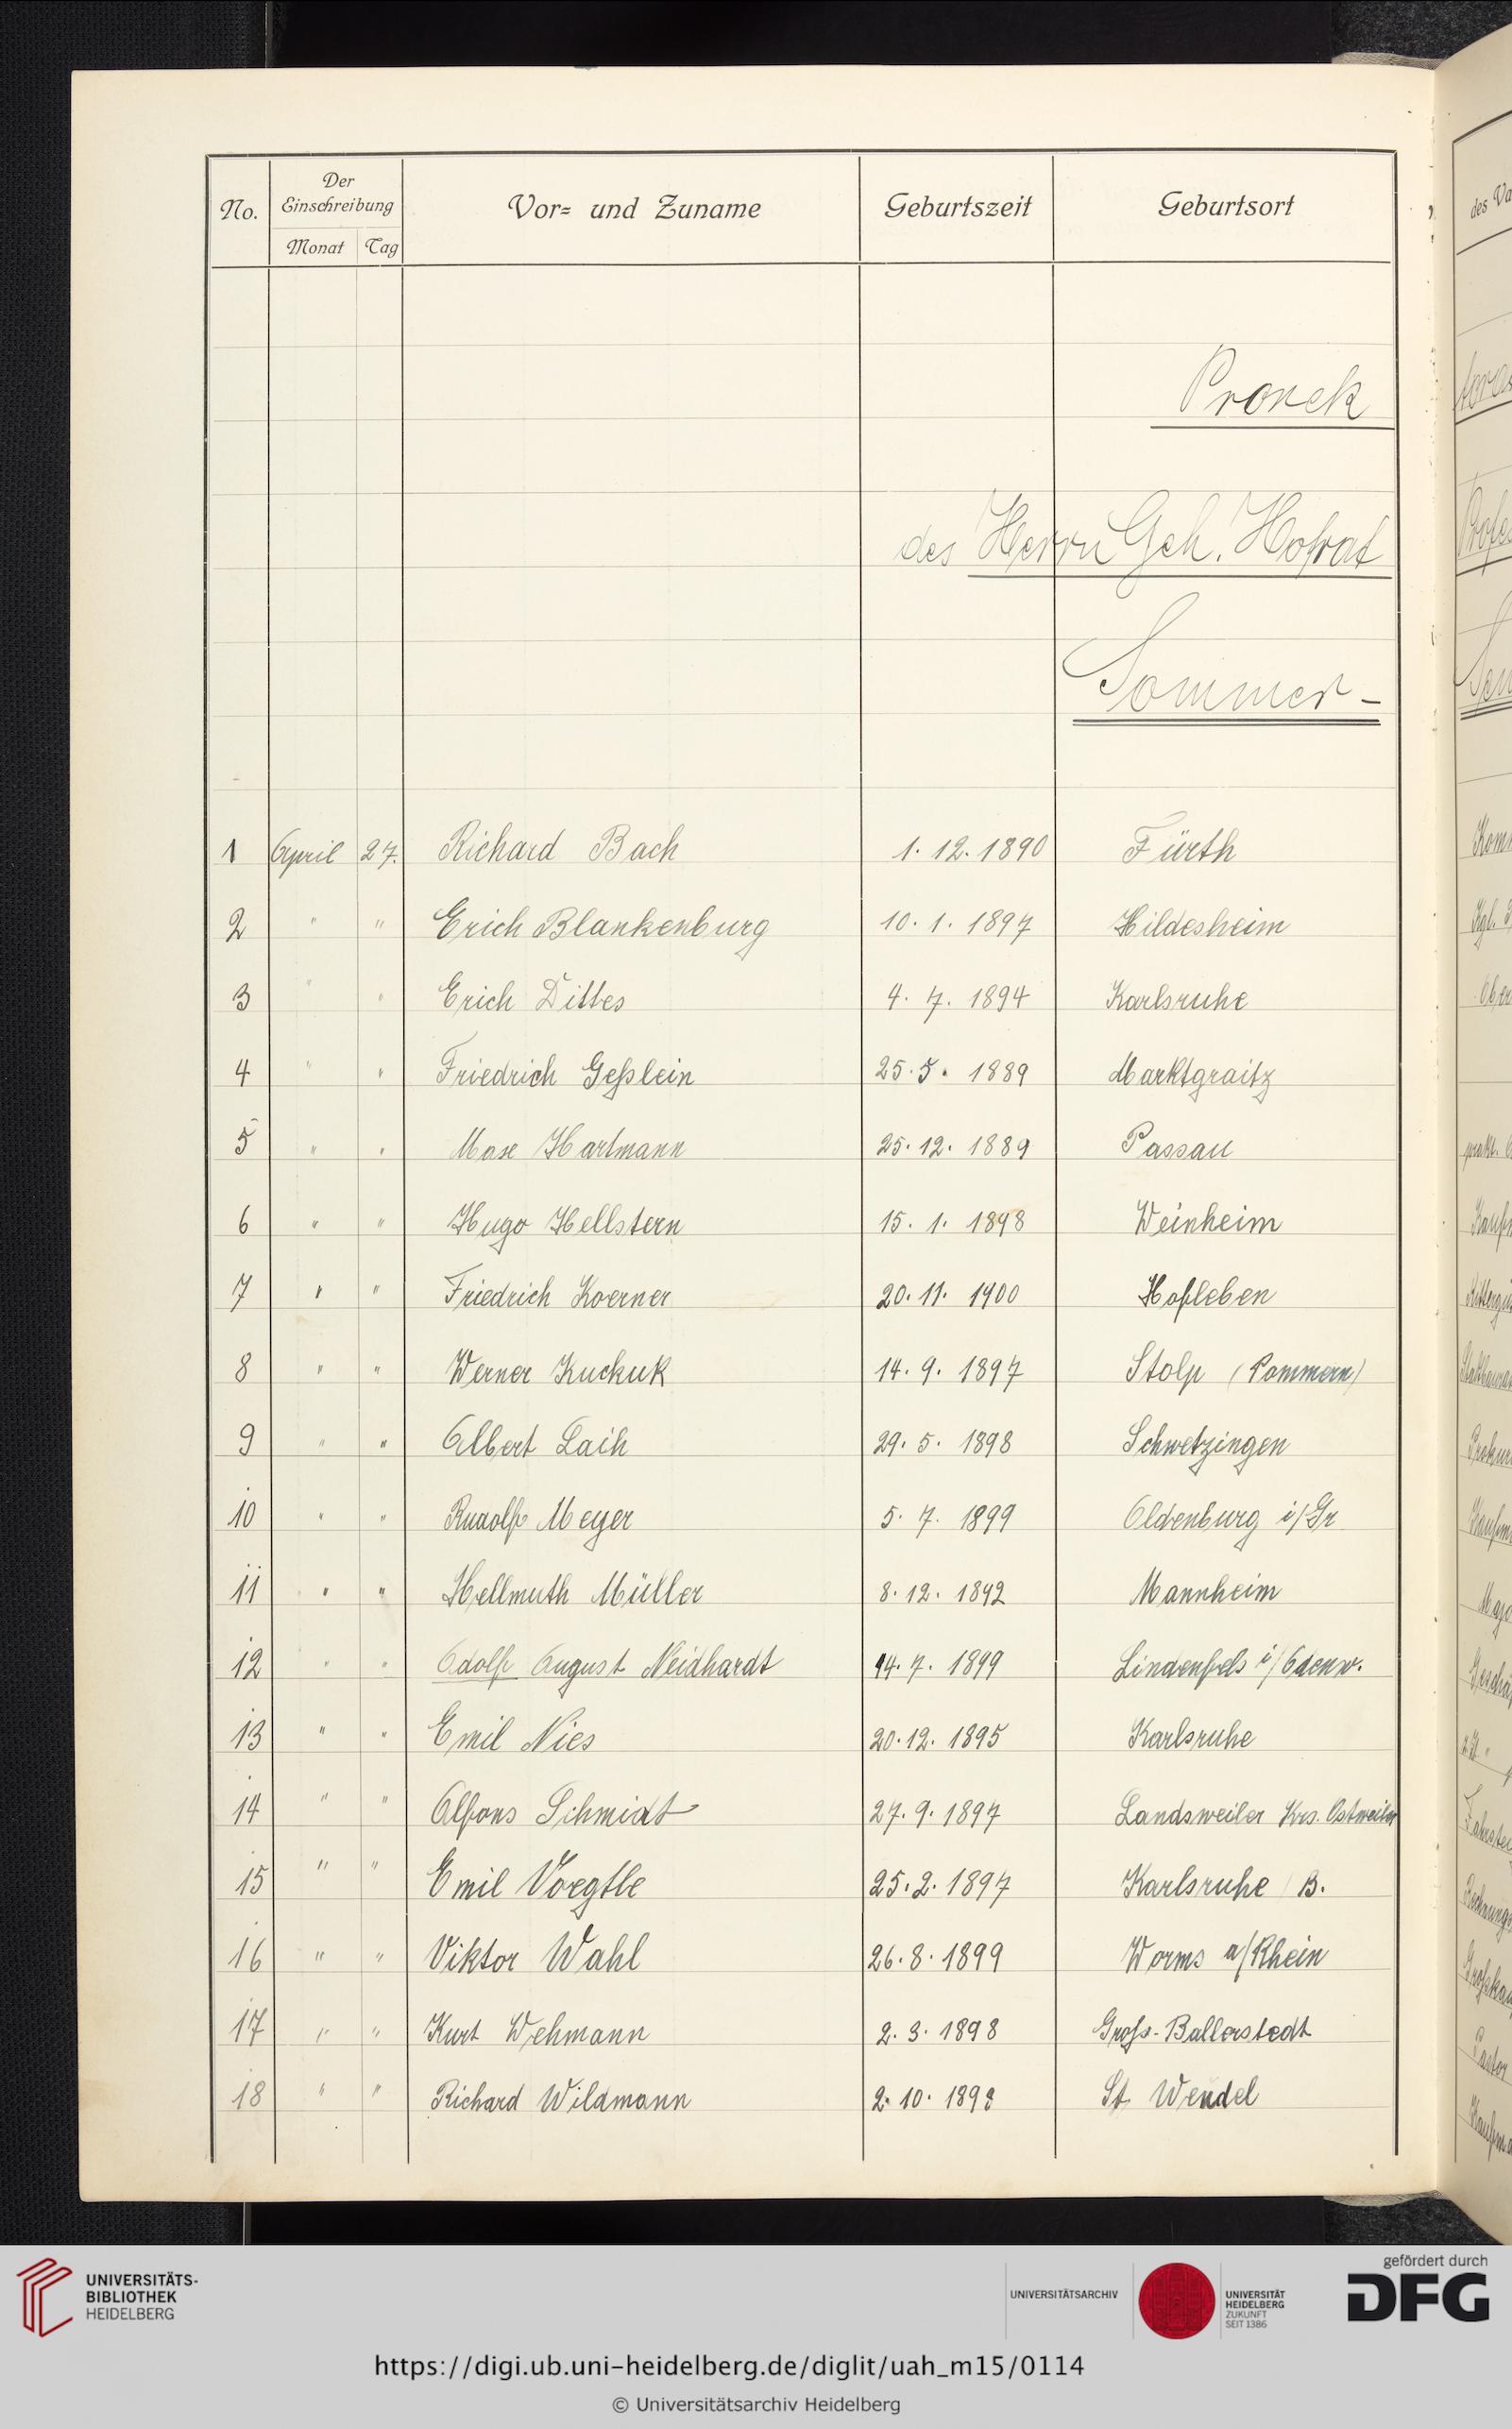 No. Der Einschreibung Monat Tag Vor= und Zuname Geburtszeit Geburtsort
des
Prorek
des Herrn Geh. Hofrat
Sommer-
1 April 27. Richard Bach 1. 12. 1890 Fürth
2 " " Erich Blankenburg 10. 1. 1897 Hildesheim
3 " " Erich Dittes 4. 7. 1894 Karlsruhe
4 " " Friedrich Geßlein 25. 5. 1889 Marktgraitz
5 " " Hartmann 25. 12. 1889 Passau
6 " " Hugo Hellstern 15. 1. 1898 Weinheim
7 " " Friedrich Koerner 20. 11. 1900 Hoßleben
8 " " Werner Kuckuk 14. 9. 1897 Stolp (Pommern)
9 " " Albert Laih 29. 5. 1898 Schwetzingen
10 " " Rudolf Meyer 5. 7. 1899 Oldenburg i/Gr
11 " " Hellmuth Müller 8. 12. 1892 Mannheim
12 " " Adolf August Neidhardt 14. 7. 1899 Lindenfels i/Odenw.
13 " " Emil Nies 20. 12. 1895 Karlsruhe
14 " " Alfons Schmidt 27. 9. 1897 Landsweiler Krs. Ostweiler
15 " " Emil Voegtle 25. 2. 1897 Karlsruhe / B.
16 " " Viktor Wahl 26. 8. 1899 Worms a/Rhein
17 " " Kurt Wehmann 2. 3. 1898 Groß-Ballerstedt
18 " " Richard Wildmann 2. 10. 1898 St. Wendel
UNIVERSITÄTS-
BIBLIOTHEK
HEIDELBERG
UNIVERSITÄTSARCHIV
UNIVERSITÄT
HEIDELBERG
ZUKUNFT
SEIT 1386
gefördert durch
DFG
https://digi.ub.uni-heidelberg.de/diglit/uah_m15/0114
© Universitätsarchiv Heidelberg